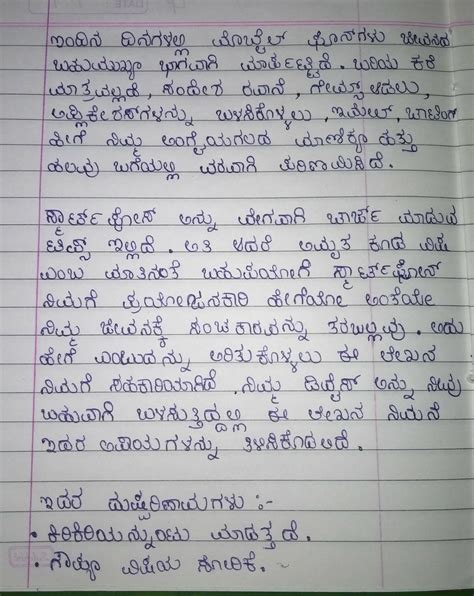 ಇಂದಿನ ದಿನಗಳಲ್ಲಿ ಮೊಬೈಲ್ ಫೋನ್‌ಗಳು ಜೀವನದ
ಬಹುಮುಖ್ಯ ಭಾಗವಾಗಿ ಮಾರ್ಪಟ್ಟಿದೆ. ಬರಿಯ ಕರೆ
ಮಾತ್ರವಲ್ಲದೆ, ಸಂದೇಶ ರವಾನೆ, ಗೇಮ್ಸ್ ಆಡಲು,
ಅಪ್ಲಿಕೇಶನ್‌ಗಳನ್ನು ಬಳಸಿಕೊಳ್ಳಲು, ಇಮೇಲ್, ಚಾಟಿಂಗ್
ಹೀಗೆ ನಿಮ್ಮ ಅಂಗೈಯಗಲದ ಮಾಣಿಕ್ಯ ಹತ್ತು
ಹಲವು ಬಗೆಯಲ್ಲಿ ವರವಾಗಿ ಪರಿಣಮಿಸಿದೆ.
ಸ್ಮಾರ್ಟ್‌ಫೋನ್ ಅನ್ನು ವೇಗವಾಗಿ ಚಾರ್ಜ್ ಮಾಡುವ
ಟಿಪ್ಸ್ ಇಲ್ಲಿದೆ. ಅತಿ ಆದರೆ ಅಮೃತ ಕೂಡ ವಿಷ
ಎಂಬ ಮಾತಿನಂತೆ ಬಹುಪಯೋಗಿ ಸ್ಮಾರ್ಟ್‌ಫೋನ್
ನಿಮಗೆ ಪ್ರಯೋಜನಕಾರಿ ಹೇಗೆಯೋ ಅಂತೆಯೇ
ನಿಮ್ಮ ಜೀವನಕ್ಕೆ ಸಂಚಕಾರವನ್ನು ತರಬಲ್ಲವು. ಅದು
ಹೇಗೆ ಎಂಬುದನ್ನು ಅರಿತುಕೊಳ್ಳಲು ಈ ಲೇಖನ
ನಿಮಗೆ ಸಹಕಾರಿಯಾಗಿದೆ. ನಿಮ್ಮ ಡಿವೈಸ್ ಅನ್ನು ನೀವು
ಬಹುವಾಗಿ ಬಳಸುತ್ತಿದ್ದಲ್ಲಿ ಈ ಲೇಖನ ನಿಮಗೆ
ಇದರ ಅಪಾಯಗಳನ್ನು ತಿಳಿಸಿಕೊಡಲಿದೆ.
ಇದರ ದುಷ್ಪರಿಣಾಮಗಳು :-
• ಕಿರಿಕಿರಿಯನ್ನುಂಟು ಮಾಡುತ್ತದೆ.
• ಗೌಪ್ಯ ವಿಷಯ ಸೋರಿಕೆ.